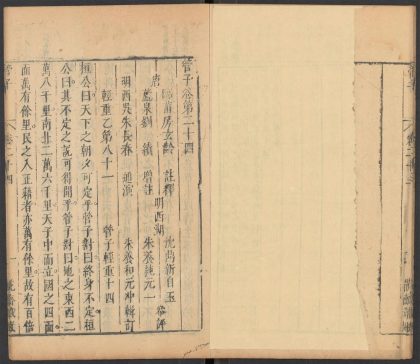 管子卷第二十四
唐 臨淄房玄齡 註釋
蘆泉劉績 增註
明西湖
沈鼎新自玉
朱養純元一
參評
明西吳朱長春 通演
朱養和元冲輯訂
輕重乙第八十一
管子輕重十四
桓公曰天下之朝夕可定乎管子對曰終身不定桓
公曰其不定之說可得聞乎管子對曰地之東西二
萬八千里南北二萬六千里天子中而立國之四面
面萬有餘里民之入正籍者亦萬有餘里故有百倍
管子
卷二十四
一
花齋藏板